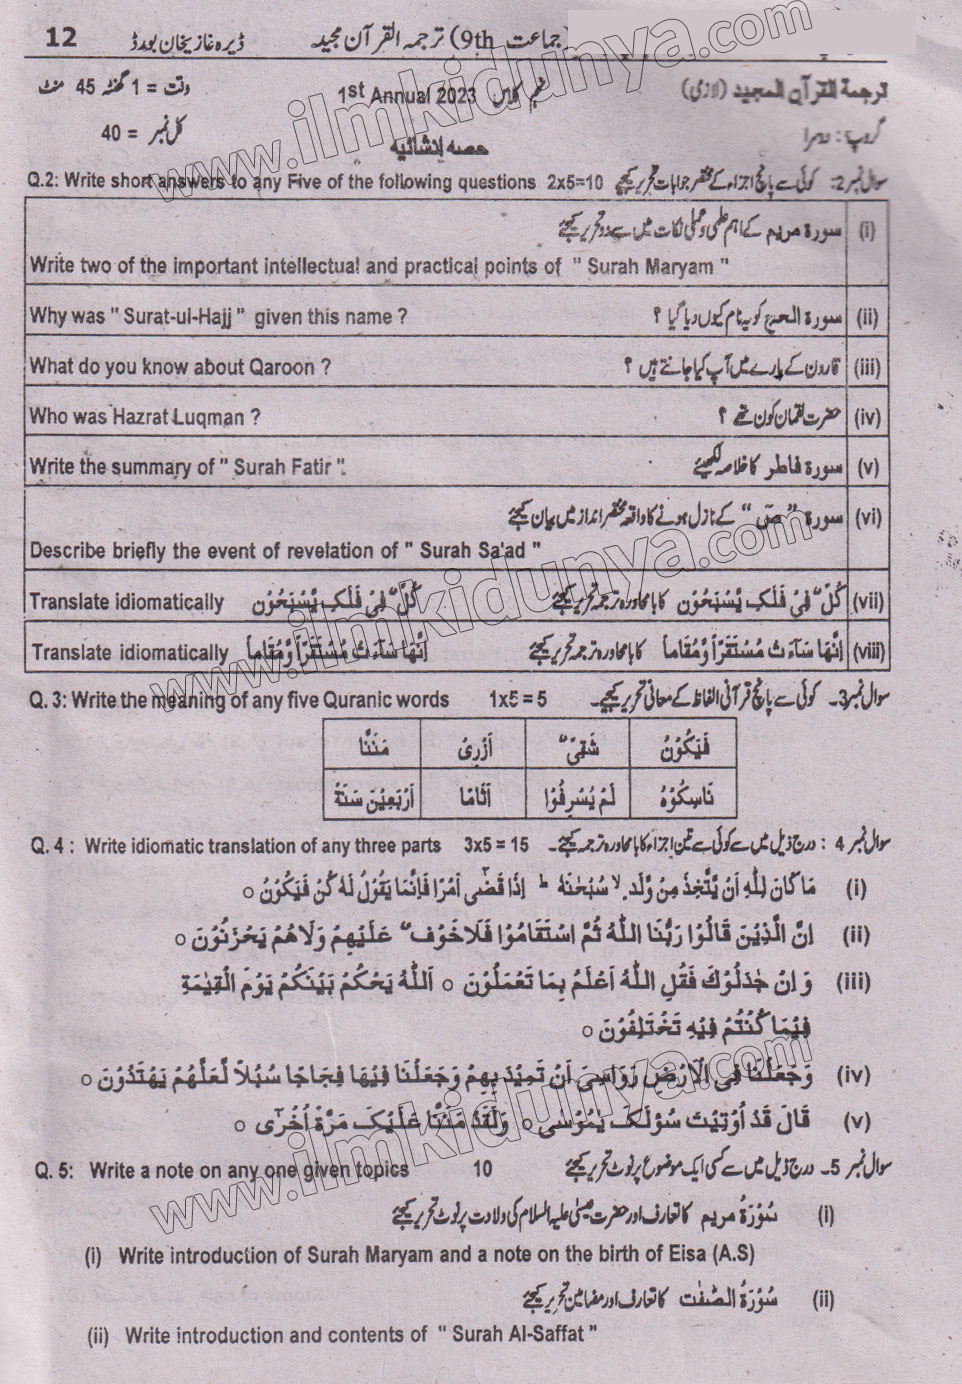 12 ڈیرہ غازیخان بورڈ (جماعت 9th) ترجمہ القرآن مجید
ترجمة القرآن المجید (لازمی) نہم کلاس 1st Annual 2023 وقت = 1 گھنٹہ 45 منٹ
گروپ: دوسرا کل نمبر = 40
حصہ اِنشائیہ
Q.2: Write short answers to any Five of the following questions 2x5=10 سوال نمبر 2: کوئی سے پانچ اجزاء کے مختصر جوابات تحریر کیجیے
(i) سورۃ مریم کے اہم علمی و عملی نکات میں سے دو تحریر کیجئے
Write two of the important intellectual and practical points of " Surah Maryam "
Why was " Surat-ul-Hajj " given this name ? (ii) سورۃ الحج کو یہ نام کیوں دیا گیا ؟
What do you know about Qaroon ? (iii) قارون کے بارے میں آپ کیا جانتے ہیں ؟
Who was Hazrat Luqman ? (iv) حضرت لقمان کون تھے ؟
Write the summary of " Surah Fatir ". (v) سورۃ فاطر کا خلاصہ لکھیئے
(vi) سورۃ " صٓ " کے نازل ہونے کا واقعہ مختصر انداز میں بیان کیجئے
Describe briefly the event of revelation of " Surah Sa'ad "
Translate idiomatically كُلٌّ فِىْ فَلَكٍ يَّسْبَحُوْن (vii) كُلٌّ فِىْ فَلَكٍ يَّسْبَحُوْن کا بامحاورہ ترجمہ تحریر کیجئے
Translate idiomatically اِنَّهَا سَآءَتْ مُسْتَقَرًّا وَّمُقَاماً (viii) اِنَّهَا سَآءَتْ مُسْتَقَرًّا وَّمُقَاماً کا بامحاورہ ترجمہ تحریر کیجئے
Q. 3: Write the meaning of any five Quranic words 1x5 = 5 سوال نمبر 3۔ کوئی سے پانچ قرآنی الفاظ کے معانی تحریر کیجیے۔
فَيَكُوْنُ شَقِىٌّ اَزْرِىْ مَنَنَّا
نَاسِكُوْهُ لَمْ يُسْرِفُوْا اَثَامًا اَرْبَعِيْنَ سَنَةً
Q. 4 : Write idiomatic translation of any three parts 3x5 = 15 سوال نمبر 4 : درج ذیل میں سے کوئی سے تین اجزاء کا بامحاورہ ترجمہ کیجئے۔
(i) مَا كَانَ لِلّٰهِ اَنْ يَّتَّخِذَ مِنْ وَّلَدٍ ۙ سُبْحٰنَهٗ ؕ اِذَا قَضٰٓى اَمْرًا فَاِنَّمَا يَقُوْلُ لَهٗ كُنْ فَيَكُوْنُ ○
(ii) اِنَّ الَّذِيْنَ قَالُوْا رَبُّنَا اللّٰهُ ثُمَّ اسْتَقَامُوْا فَلَا خَوْفٌ عَلَيْهِمْ وَلَا هُمْ يَحْزَنُوْنَ ○
(iii) وَ اِنْ جٰدَلُوْكَ فَقُلِ اللّٰهُ اَعْلَمُ بِمَا تَعْمَلُوْنَ ○ اَللّٰهُ يَحْكُمُ بَيْنَكُمْ يَوْمَ الْقِيٰمَةِ
فِيْمَا كُنْتُمْ فِيْهِ تَخْتَلِفُوْنَ ○
(iv) وَجَعَلْنَا فِى الْاَرْضِ رَوَاسِىَ اَنْ تَمِيْدَ بِهِمْ وَجَعَلْنَا فِيْهَا فِجَاجًا سُبُلًا لَّعَلَّهُمْ يَهْتَدُوْنَ ○
(v) قَالَ قَدْ اُوْتِيْتَ سُؤْلَكَ يٰمُوْسٰى ○ وَلَقَدْ مَنَنَّا عَلَيْكَ مَرَّةً اُخْرٰٓى ○
Q. 5: Write a note on any one given topics 10 سوال نمبر 5۔ درج ذیل میں سے کسی ایک موضوع پر نوٹ تحریر کیجئے
(i) سُوْرَةُ مریم کا تعارف اور حضرت عیسیٰ علیہ السلام کی ولادت پر نوٹ تحریر کیجئے
(i) Write introduction of Surah Maryam and a note on the birth of Eisa (A.S)
(ii) سُوْرَةُ الصّٰفٰت کا تعارف اور مضامین تحریر کیجئے
(ii) Write introduction and contents of " Surah Al-Saffat "
www.ilmkidunya.com
www.ilmkidunya.com
www.ilmkidunya.com